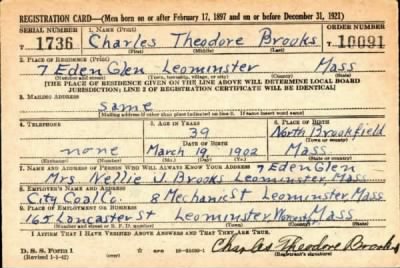 REGISTRATION CARD—(Men born on or after February 17, 1897 and on or before December 31, 1921)
SERIAL NUMBER 1. NAME (Print) ORDER NUMBER
T 1736 Charles Theodore Brooks T 10091
(First) (Middle) (Last)
2. PLACE OF RESIDENCE (Print)
7 Eden Glen Leominster Mass
(Number and street) (Town, township, village, or city) (County) (State)
[THE PLACE OF RESIDENCE GIVEN ON THE LINE ABOVE WILL DETERMINE LOCAL BOARD
JURISDICTION; LINE 2 OF REGISTRATION CERTIFICATE WILL BE IDENTICAL]
3. MAILING ADDRESS
same
[Mailing address if other than place indicated on line 2. If same insert word same]
4. TELEPHONE 5. AGE IN YEARS 6. PLACE OF BIRTH
39 North Brookfield
DATE OF BIRTH (Town or county)
none March 19 1902 Mass
(Exchange) (Number) (Mo.) (Day) (Yr.) (State or country)
7. NAME AND ADDRESS OF PERSON WHO WILL ALWAYS KNOW YOUR ADDRESS 7 Eden Glen
Mrs Nellie J. Brooks Leominster Mass
8. EMPLOYER'S NAME AND ADDRESS
City Coal Co. 8 Mechanic St Leominster Mass
9. PLACE OF EMPLOYMENT OR BUSINESS
165 Lancaster St Leominster Mass
(Number and street or R. F. D. number) (Town) (County) (State)
I AFFIRM THAT I HAVE VERIFIED ABOVE ANSWERS AND THAT THEY ARE TRUE.
D. S. S. Form 1
(Revised 1-1-42) (over) Charles Theodore Brooks
(Registrant's signature)